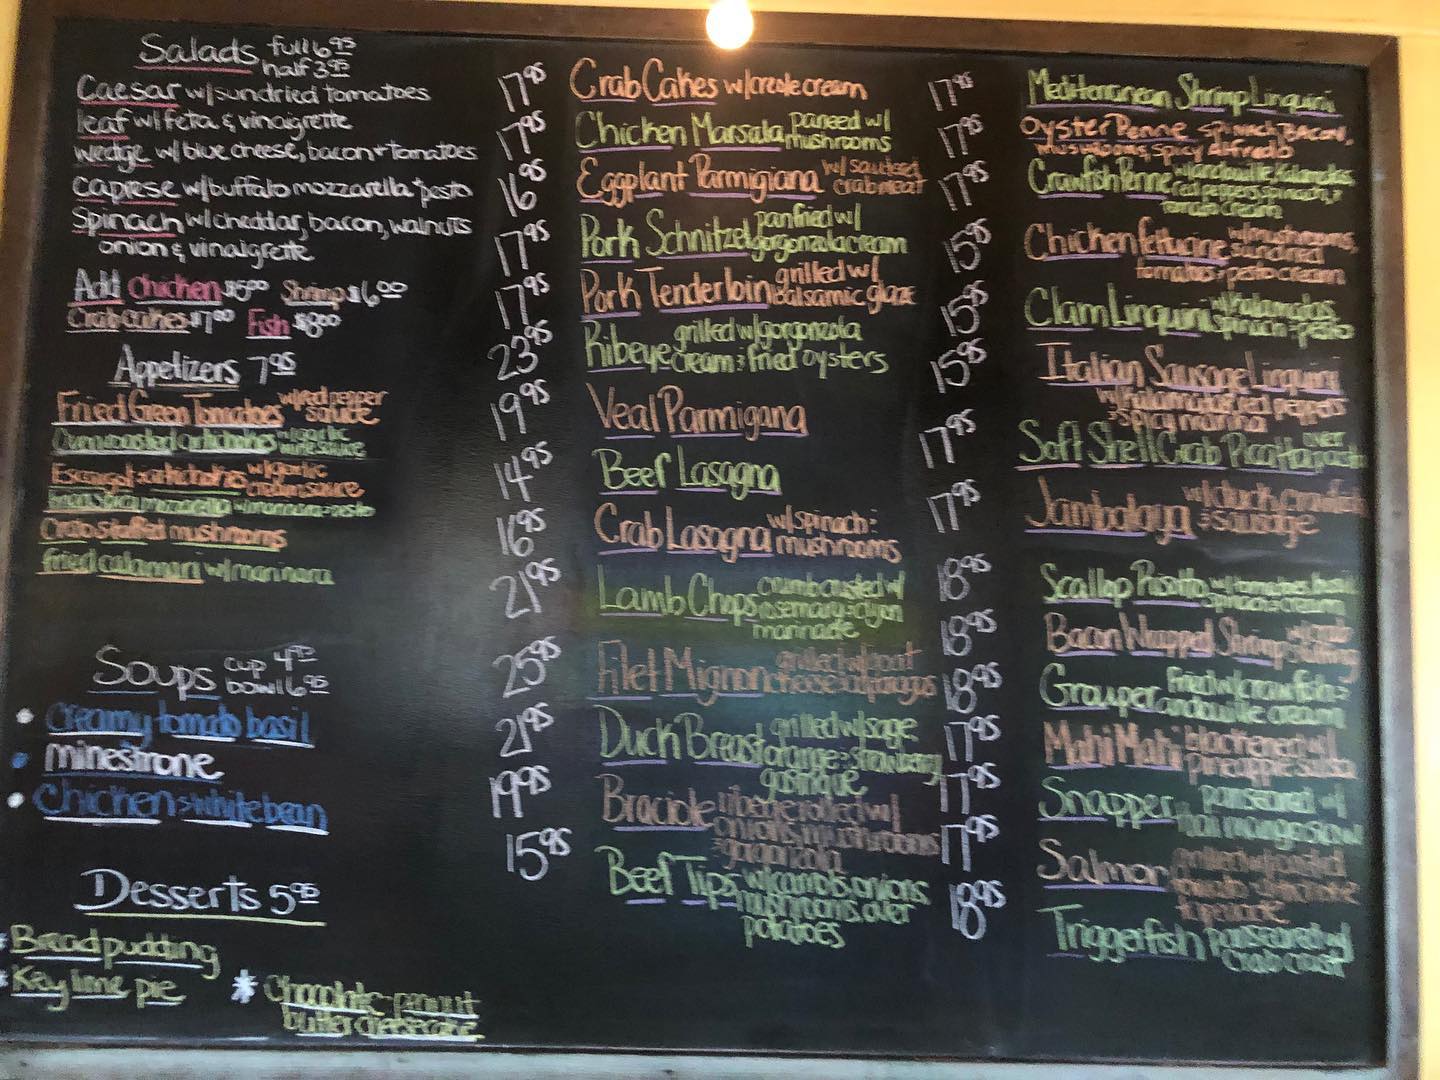 Salads full 6.95
half 3.95
Caesar w/sundried tomatoes
leaf w/feta & vinaigrette
wedge w/blue cheese, bacon + tomatoes
Caprese w/buffalo mozzarella + pesto
Spinach w/cheddar, bacon, walnuts
onion & vinaigrette
Add Chicken $5.00 Shrimp $6.00
Crabcakes $7.00 Fish $8.00
Appetizers 7.95
Fried Green Tomatoes w/red pepper
sauce
Ovenroasted artichokes w/garlic
wine sauce
Escargot + artichokes w/garlic
cream sauce
mozzarella w/marinara + pesto
Crab stuffed mushrooms
fried calamari w/marinara
Soups cup 4.95
bowl 6.95
Creamy tomato basil
minestrone
Chicken + white bean
Desserts 5.95
* Bread pudding
* Key lime pie
* Chocolate-peanut
butter cheesecake
17.95 Crab Cakes w/creole cream
17.95 Chicken Marsala paneed w/
mushrooms
16.95 Eggplant Parmigiana w/sauteed
crabmeat
17.95 Pork Schnitzel panfried w/
gorgonzola cream
17.95 Pork Tenderloin grilled w/
balsamic glaze
23.95 Ribeye grilled w/gorgonzola
cream + fried oysters
19.95 Veal Parmigana
14.95 Beef Lasagna
16.95 Crab Lasagna w/spinach +
mushrooms
21.95 Lamb Chops crumbcrusted w/
rosemary + dijon
marinade
25.95 Filet Mignon grilled w/goat
cheese + asparagus
21.95 Duck Breast grilled w/sage
orange + strawberry
gastrique
19.95 Braciole ribeye rolled w/
onions, mushrooms
+ gorgonzola
15.95 Beef Tips w/carrots, onions
mushrooms over
potatoes
17.95 Mediterranean Shrimp Linguini
17.95 Oyster Penne spinach, bacon,
mushrooms, spicy alfredo
17.95 Crawfish Penne w/andouille, kalamatas,
red peppers, spinach, +
tomato cream
15.95 Chicken fettucine w/mushrooms,
sundried
tomatoes + pesto cream
15.95 Clam Linguini w/kalamatas
spinach + pesto
15.95 Italian Sausage Linguini
w/kalamatas, red peppers
+ spicy marinara
17.95 Soft Shell Crab Picatta over
pasta
17.95 Jambalaya w/duck, crawfish
+ sausage
18.95 Scallop Risotto w/tomatoes, basil
spinach + cream
18.95 Bacon Wrapped Shrimp w/crab
stuffing
18.95 Grouper fried w/crawfish +
andouille cream
17.95 Mahi Mahi blackened w/
pineapple salsa
17.95 Snapper panseared w/
thai mango slaw
17.95 Salmon grilled w/roasted
tomato + artichoke
tapenade
18.95 Triggerfish panseared w/
crab crust